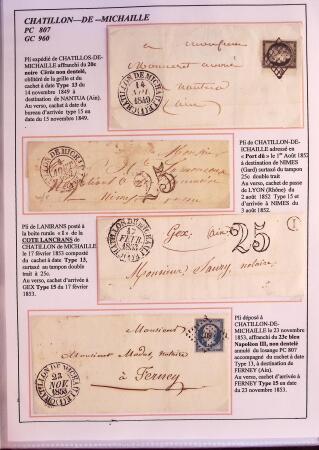 CHATILLON—DE –MICHAILLE
PC 807
GC 960
Pli expédié de CHATILLOS-DE-
MICHAILLE affranchi du 20c
noire Cérès non dentelé,
oblitéré de la grille et du
cachet à date Type 13 du
14 novembre 1849 à
destination de NANTUA (Ain).
Au verso, cachet à date du
bureau d'arrivée type 15 en
date du 15 novembre 1849.
a
Monsieur
nantua
CHATILLON DE MICHAILLE
14
1849
Pli de CHATILLON-DE-
ICHAILLE adressé en
« Port dû » le 1er Août 1852
à destination de NIMES
(Gard) surtaxé au tampon
25c double trait
Au verso, cachet de passe
de LYON (Rhône) du
2 août 1852 Type 15 et
d'arrivée à NIMES du
3 août 1852.
Monsieur
25
Pli de LANIRANS posté à
la boite rurale « I » de la
COTE LANCRANS de
CHATILLON de MICHAILLE
le 17 février 1853 composté
du cachet à date Type 13,
surtaxé au tampon double
trait à 25c.
Au verso, cachet d'arrivée à
GEX Type 15 du 17 février
1853.
CHATILLON DE MICHAILLE
17
FEVR.
1853
Gex. (ain)
25
Monsieur Saury, notaire
Pli déposé à
CHATILLON-DE-
MICHAILLE le 23 novembre
1853, affranchi du 25c bleu
Napoléon III, non dentelé
annulé du losange PC 807
accompagné du cachet à date
Type 13, à destination de
FERNEY (Ain).
Au verso, cachet d'arrivée à
FERNEY Type 15 en date
du 23 novembre 1853.
Monsieur
Monsieur Modas, notaire
à Ferney
CHATILLON DE MICHAILLE
23
NOV.
1853